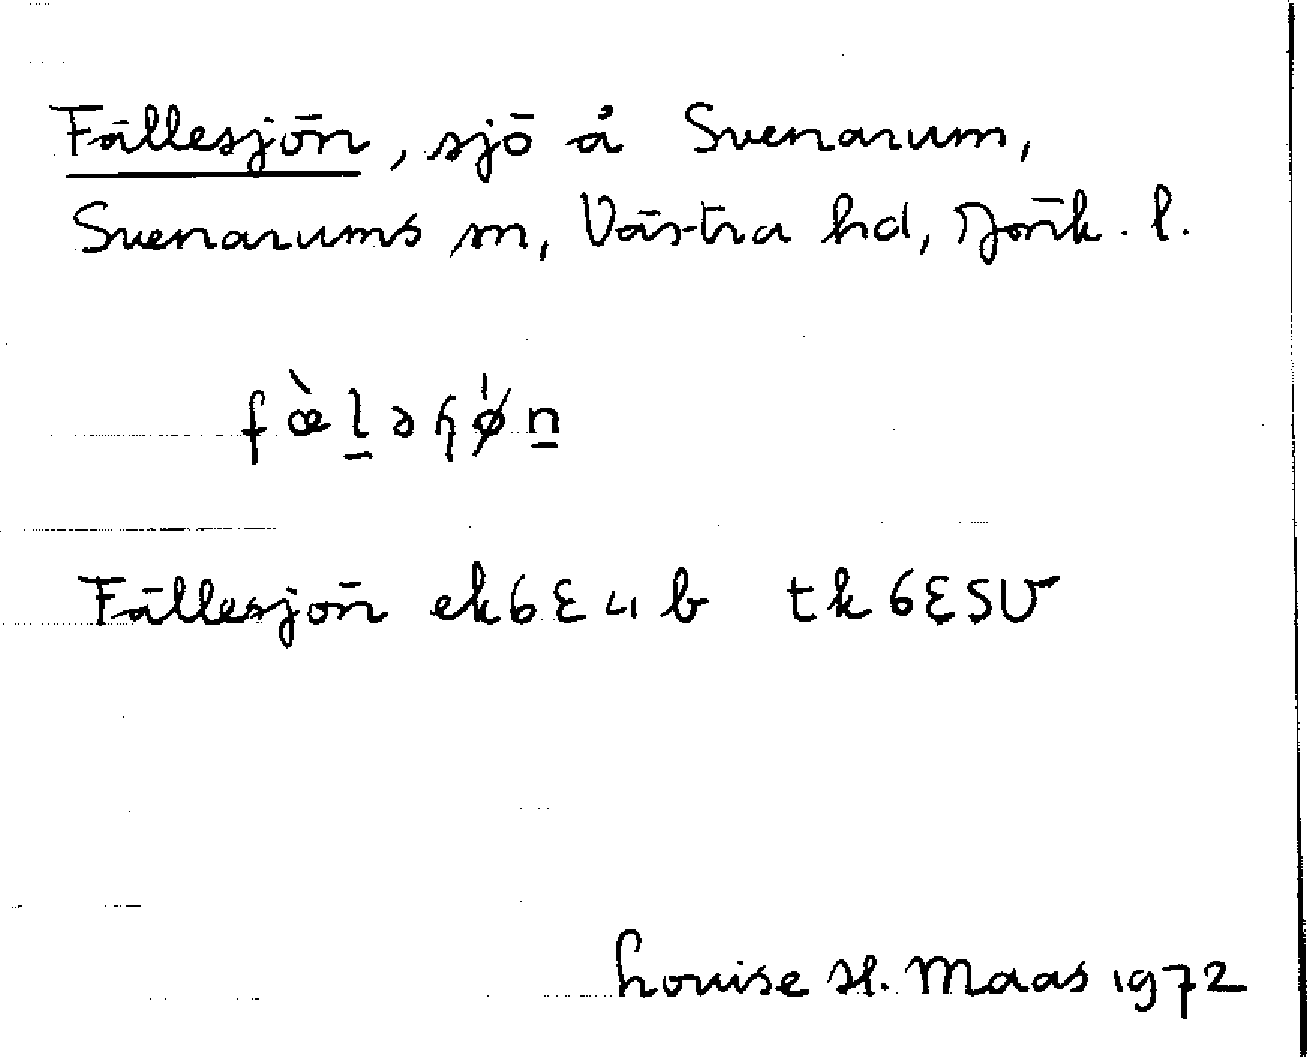 Fällesjön, sjö å Svenarum,
Svenarums sn, Västra hd, Jönk. l.
Fällesjön ek6E4b tk6ESV
Louise H. Maas 1972